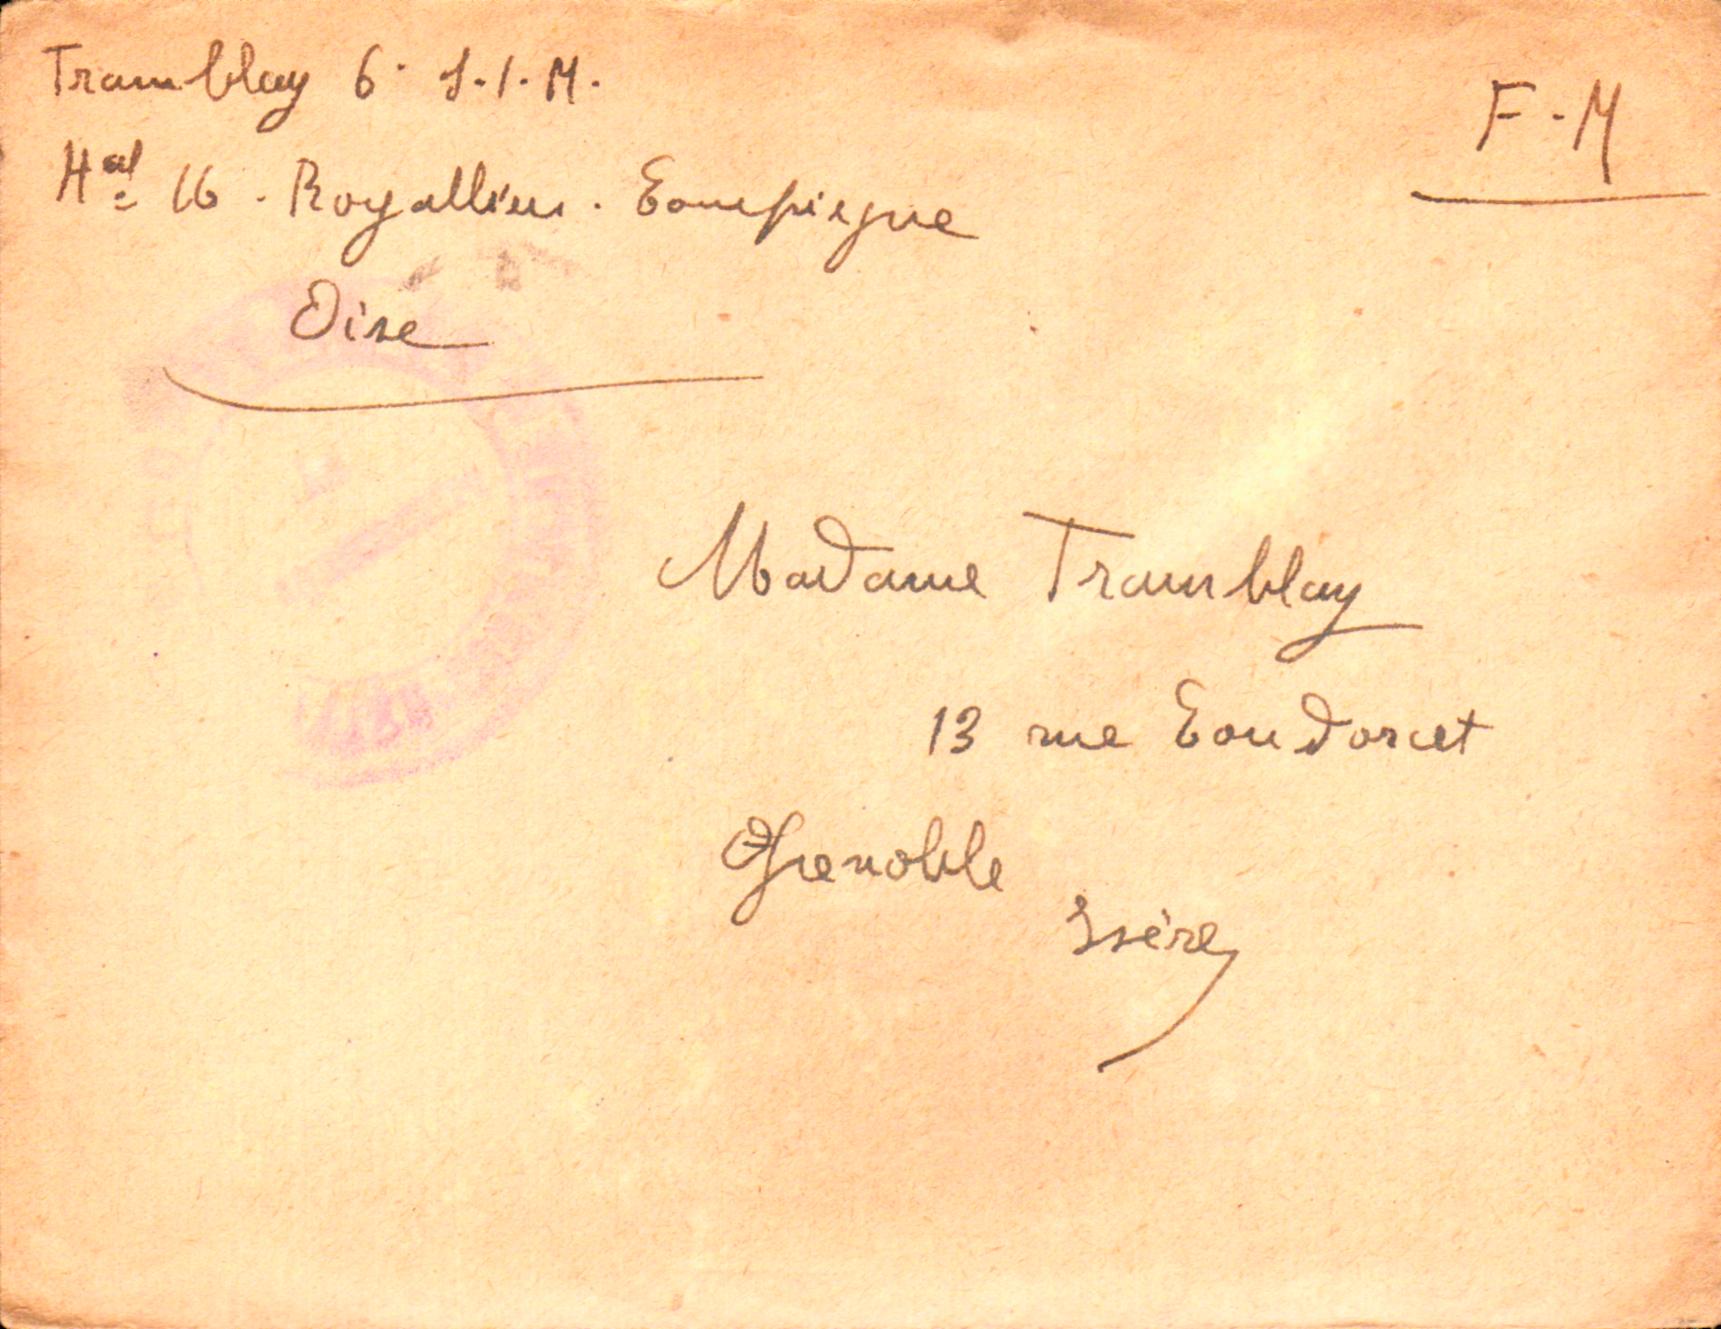 Tramblay 6. S.I.M.
F.M
Hal 16. Royallieu. Compiegne
Oise
Madame Tramblay
13 rue Condorcet
Grenoble
Isère